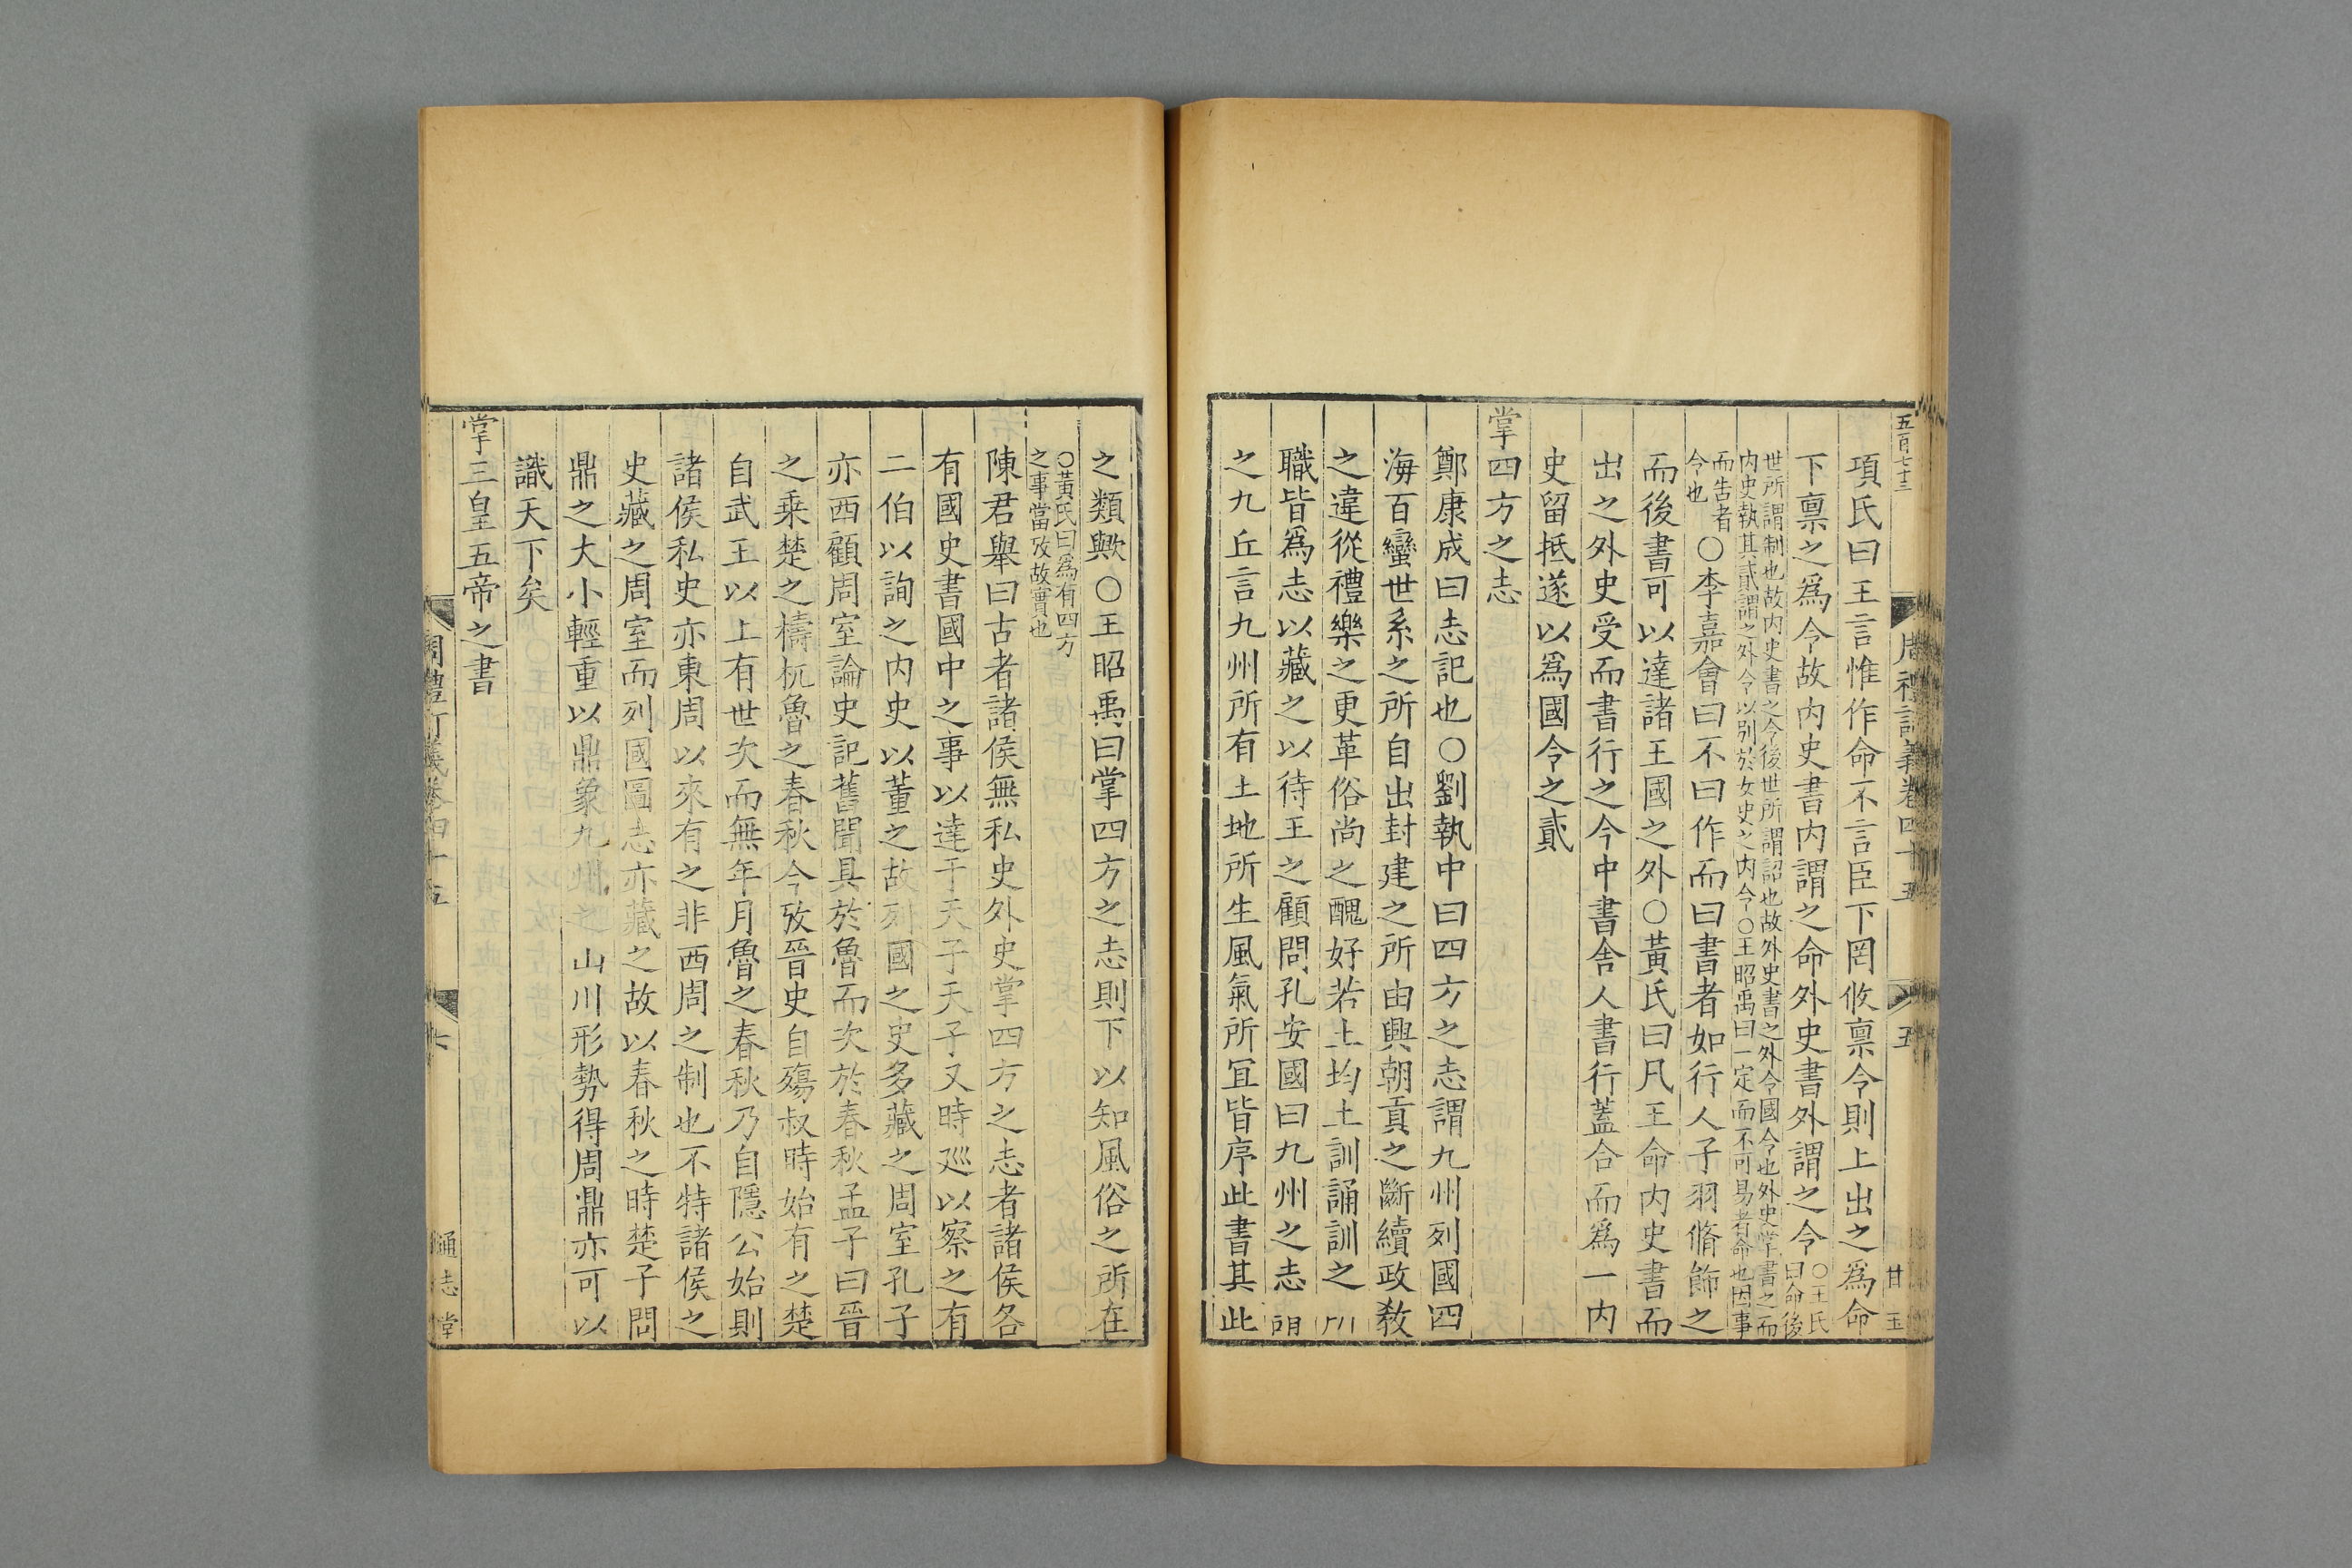 五百七十三
周禮訂義卷四十五
五
甘玉
項氏曰王言惟作命不言臣下罔攸禀令則上出之為命
下禀之爲令故内史書内謂之命外史書外謂之令○王氏曰命後
世所謂制也故内史書之令後世所謂詔也故外史書之外令國令也外史掌書之而
内史執其貳謂之外令以别於女史之内令○王昭禹曰一定而不可易者命也因事
而告者令也○李嘉會曰不曰作而曰書者如行人子羽脩飾之
而後書可以達諸王國之外○黃氏曰凡王命内史書而
出之外史受而書行之今中書舍人書行蓋合而爲一内
史留抵遂以爲國令之貳
掌四方之志
鄭康成曰志記也○劉執中曰四方之志謂九州列國四
海百蠻世系之所自出封建之所由興朝貢之斷續政敎
之違從禮樂之更革俗尚之醜好若土均土訓誦訓之
職皆爲志以藏之以待王之顧問孔安國曰九州之志
之九丘言九州所有土地所生風氣所宜皆序此書其此
之類歟○王昭禹曰掌四方之志則下以知風俗之所在
○黃氏曰爲有四方
之事當攷故實也
陳君舉曰古者諸侯無私史外史掌四方之志者諸侯各
有國史書國中之事以達于天子天子又時廵以察之有
二伯以詢之内史以董之故列國之史多藏之周室孔子
亦西顧周室論史記舊聞具於魯而次於春秋孟子曰晉
之乗楚之檮杌魯之春秋今攷晉史自殤叔時始有之楚
自武王以上有世次而無年月魯之春秋乃自隱公始則
諸侯私史亦東周以來有之非西周之制也不特諸侯之
史藏之周室而列國圖志亦藏之故以春秋之時楚子問
鼎之大小輕重以鼎象九州之山川形勢得周鼎亦可以
識天下矣
掌三皇五帝之書
周禮訂義卷四十五
通志堂